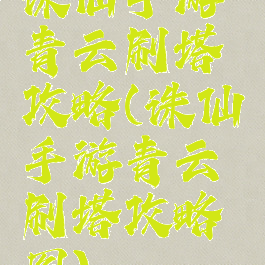 诛仙手游
青云刷塔
攻略(诛仙
手游青云
刷塔攻略
图)